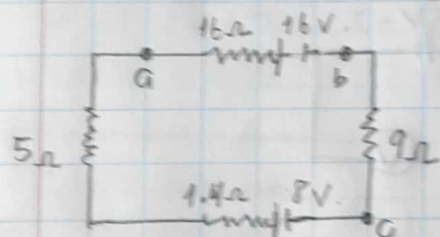 16Ω 16V.
a b
5Ω 9Ω
1.4Ω 8V.